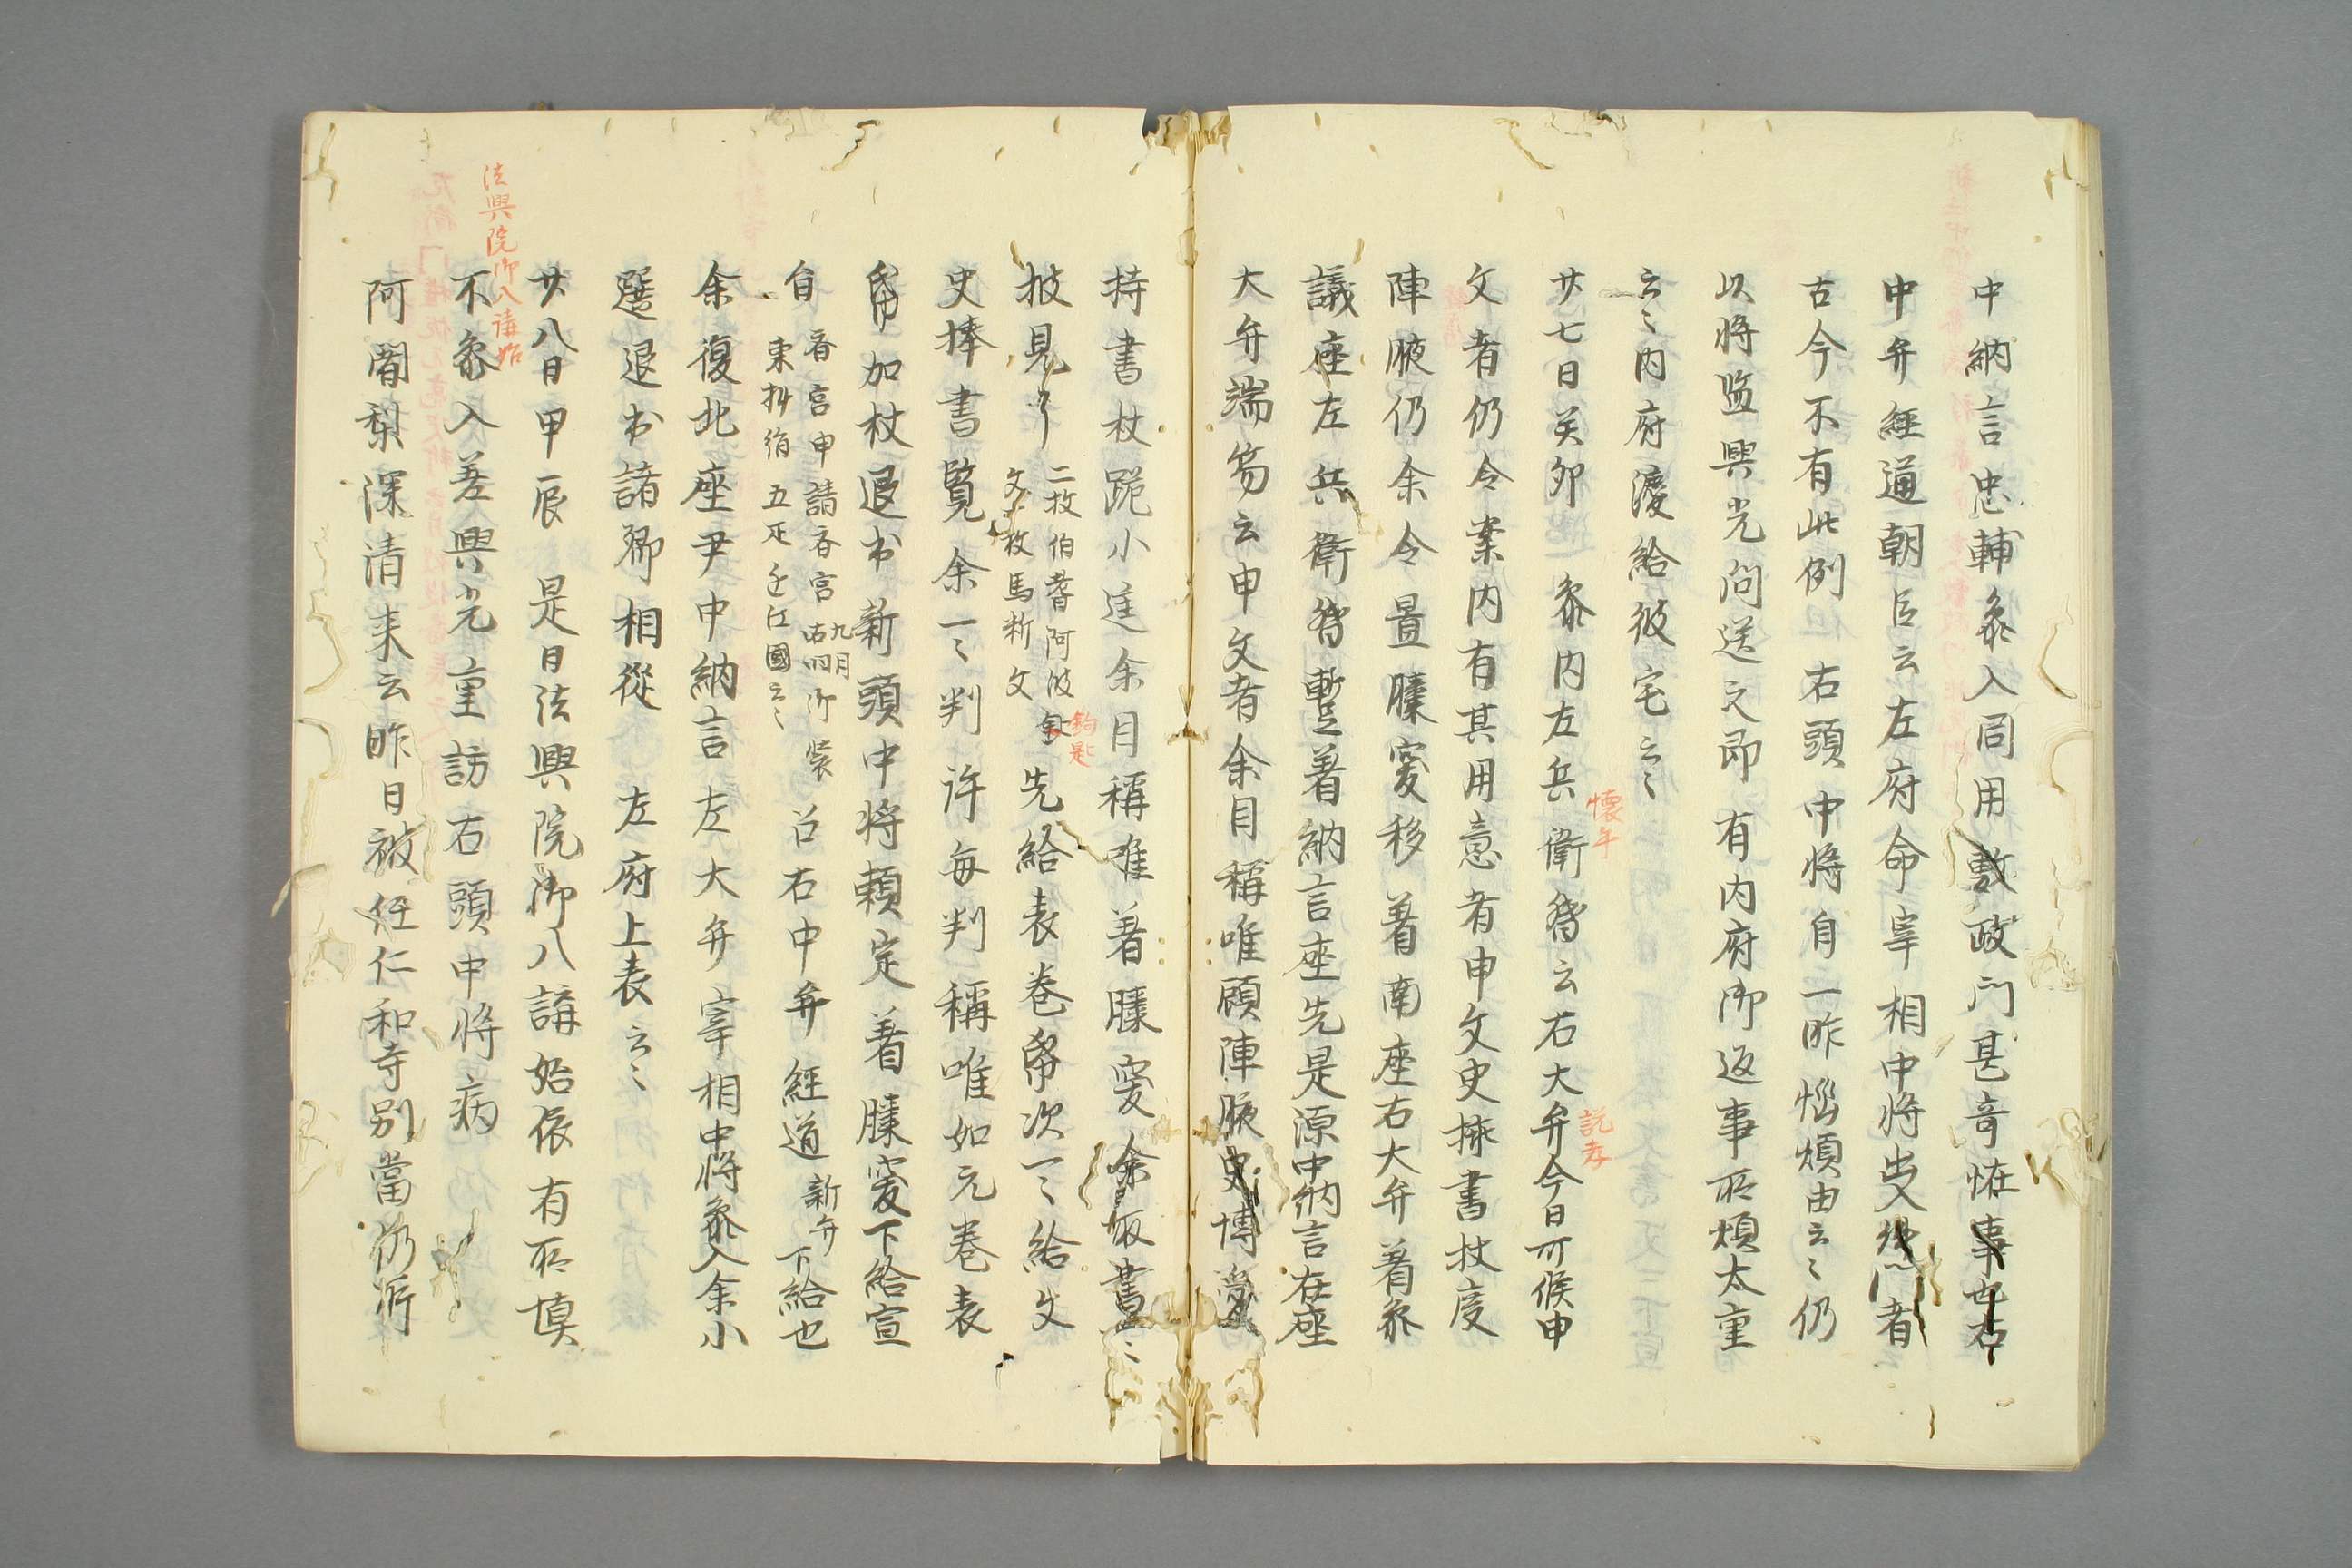 中納言忠輔参入同用敷政門甚奇恠事也右
中弁經通朝臣云左府命宰相中将出入陣門者
古今不有此例右頭中将自一昨惱煩由云〻仍
以将監興光問送之即有内府御返事所煩太重
云〻内府渡給彼宅云〻
廿七日癸卯参内左兵衛督云右大弁今日可候申
懐平
説孝
文者仍令案内有其用意者申文史挿書杖度
陣腋仍余令置膝突移著南座右大弁著参
議座左兵衛督暫著納言座先是源中納言在座
大弁端笏云申文者余目稱唯顧陣腋史博愛
持書杖跪小庭余目稱唯著膝突余取書〻
披見了
二枚伯耆阿波
鉤匙
文一枚馬新文
先給表巻帋次一〻給文
史捧書覧余一〻判許毎判稱唯如元巻表
帋加杖退出新頭中将頼定著膝突下給宣
旨
春宮申請春宮九月
御装
東抄絹五疋近江國云〻
召右中弁經通
新弁
下給也
余復北座尹中納言左大弁宰相中将参入余小
選退出諸卿相從左府上表云〻
法興院御八講始
廿八日甲辰是日法興院御八講始依有所慎
不参入差興光重訪右頭中将病
阿闍梨深清来云昨日被任仁和寺別當仍所